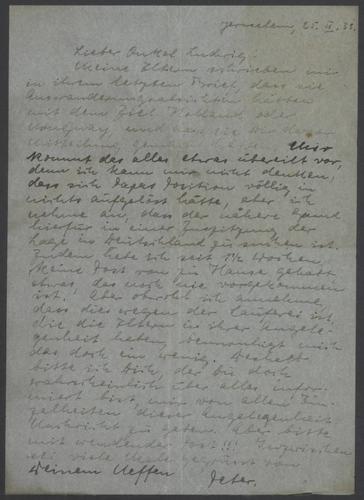 Jerusalem, 25. II. 38.
Lieber Onkel Ludwig!
Meine Eltern schrieben mir
in ihrem letzten Brief, dass sie
Auswanderungsabsichten hätten
mit dem Ziel Holland oder
und
Mitteilung Mir
kommt das alles etwas übereilt vor,
denn ich kann mir nicht denken,
dass sich Papas Position völlig in
nichts aufgelöst hätte, aber ich
nehme an, dass der nähere Grund
hierfür in einer Zuspitzung der
Lage in Deutschland zu suchen ist.
Zudem habe ich seit Wochen
keine Post von zu Hause gehabt
etwas, das noch nie vorgekommen
ist. Aber obwohl ich annehme,
dass dies wegen der Lauferei ist,
die die Eltern in ihrer Angele-
genheit haben, beunruhigt mich
das doch ein wenig. Deshalb
bitte ich Dich, der Du doch
wahrscheinlich über alles infor-
miert bist, mir von allen Ein-
zelheiten dieser Angelegenheit
Nachricht zu geben. Aber bitte
mit wendender Post!!! Inzwischen
sei viele Male gegrüsst von
Deinem Neffen Peter.